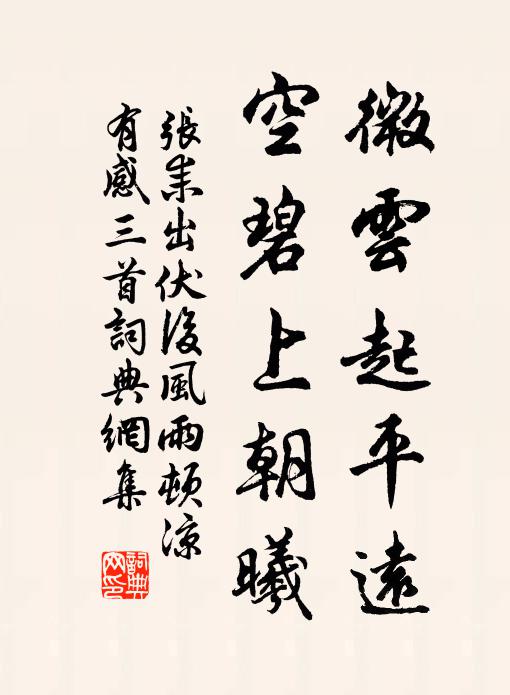 微雲起平遠
空碧上朝曦
張耒出伏後風雨頓涼
有感三首詞典網集
詞典
网印